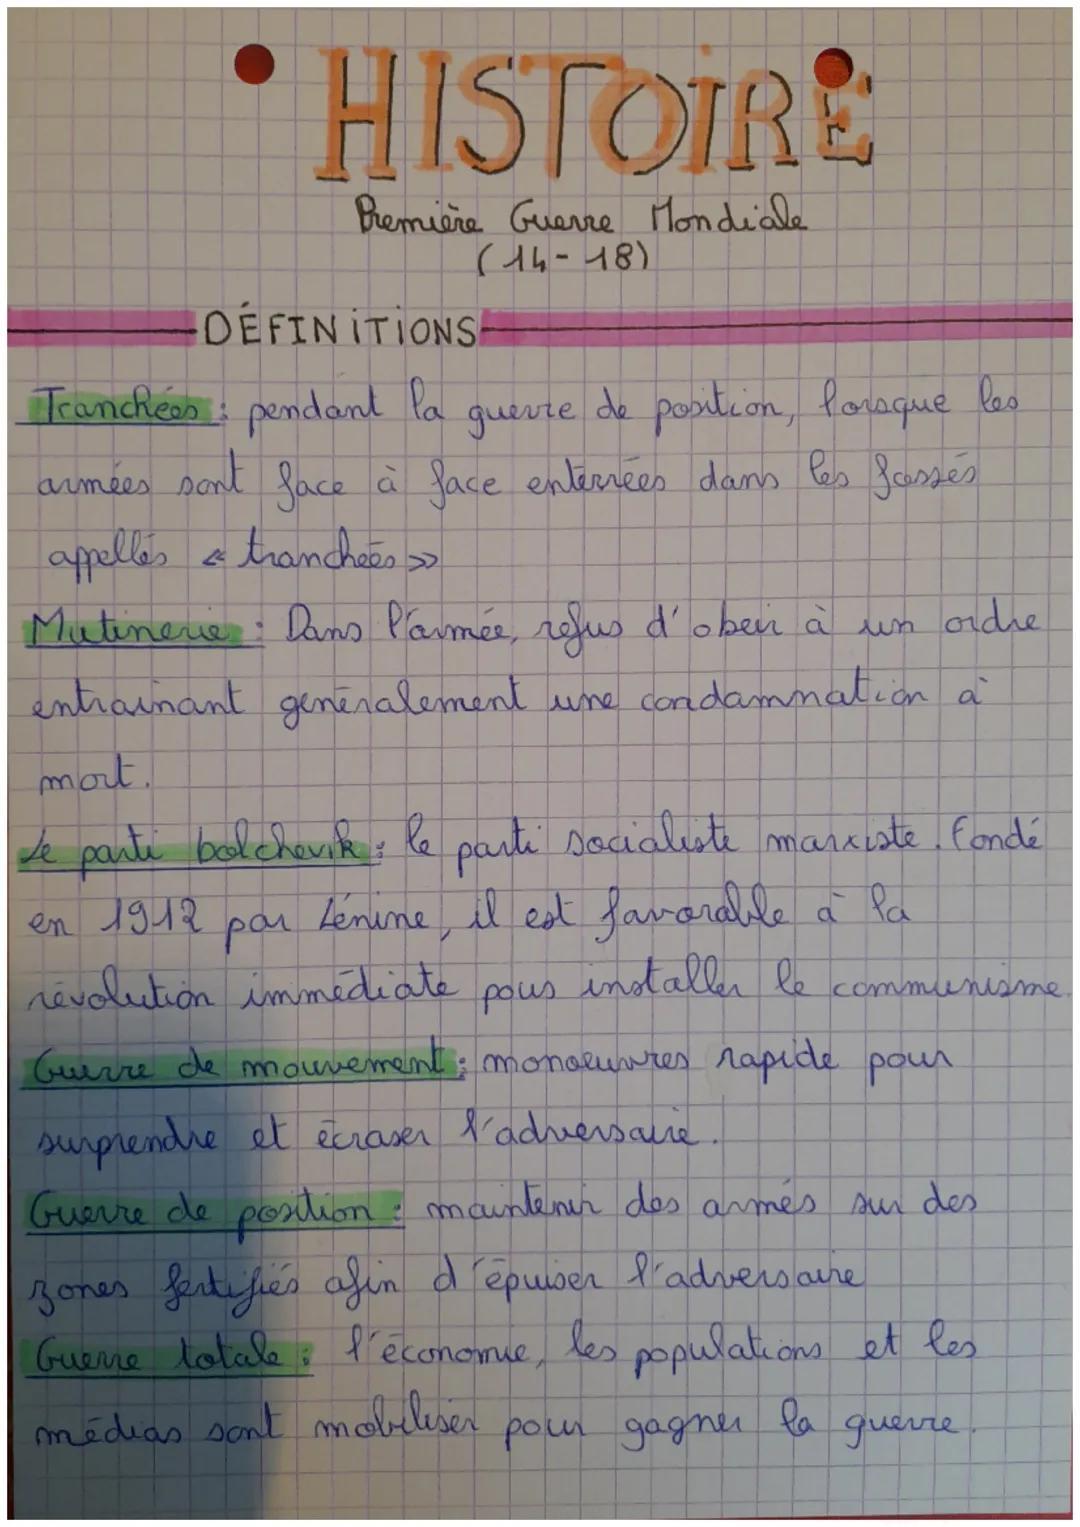 HISTOIRE
Première Guerre Mondiale
(14-18)
DÉFINITIONS
Tranchées : pendant la guerre de position, lorsque les
armées sont face à face enterrées dans les fossés
appellés « tranchées »
Mutinerie : Dans l'armée, refus d'obeir à un ordre
entrainant généralement une condamnation à
mort.
Le parti bolchevik : le parti socialiste marxiste. Fondé
en 1912 par Lénine, il est favorable à la
révolution immédiate pour installer le communisme.
Guerre de mouvement : manoeuvres rapide pour
surprendre et écraser l'adversaire.
Guerre de position : maintenir des armés sur des
zones fertifiés afin d'épuiser l'adversaire
Guerre totale : l'économie, les populations et les
médias sont mobiliser pour gagner la guerre.